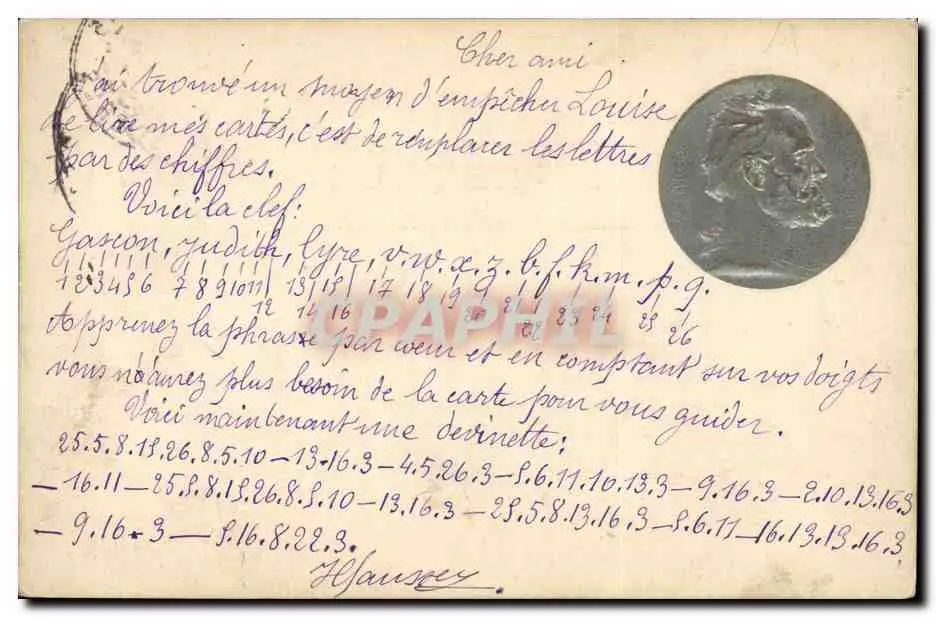 Cher ami
J'ai trouvé un moyen d'empêcher Louise
de lire mes cartes, c'est de remplacer les lettres
par des chiffres.
Voici la clef:
Gascon, judith, lyre, v.w.x.z.b.f.k.m.p.q.
1 2 3 4 5 6 7 8 9 10 11 12 13 14 15 16 17 18 19 20 21 22 23 24 25 26
Apprenez la phrase par cœur et en comptant sur vos doigts
vous n'aurez plus besoin de la carte pour vous guider.
Voici maintenant une devinette:
25.5.8.15.26.8.5.10 – 13.16.3 – 4.5.26.3 – 5.6.11.10.13.3 – 9.16.3 – 2.10.13.16.3
– 16.11 – 25.5.8.15.26.8.5.10 – 13.16.3 – 25.5.8.13.16.3 – 5.6.11 – 16.13.13.16.3
– 9.16.3 – 5.16.8.22.3.
CPAPHIL